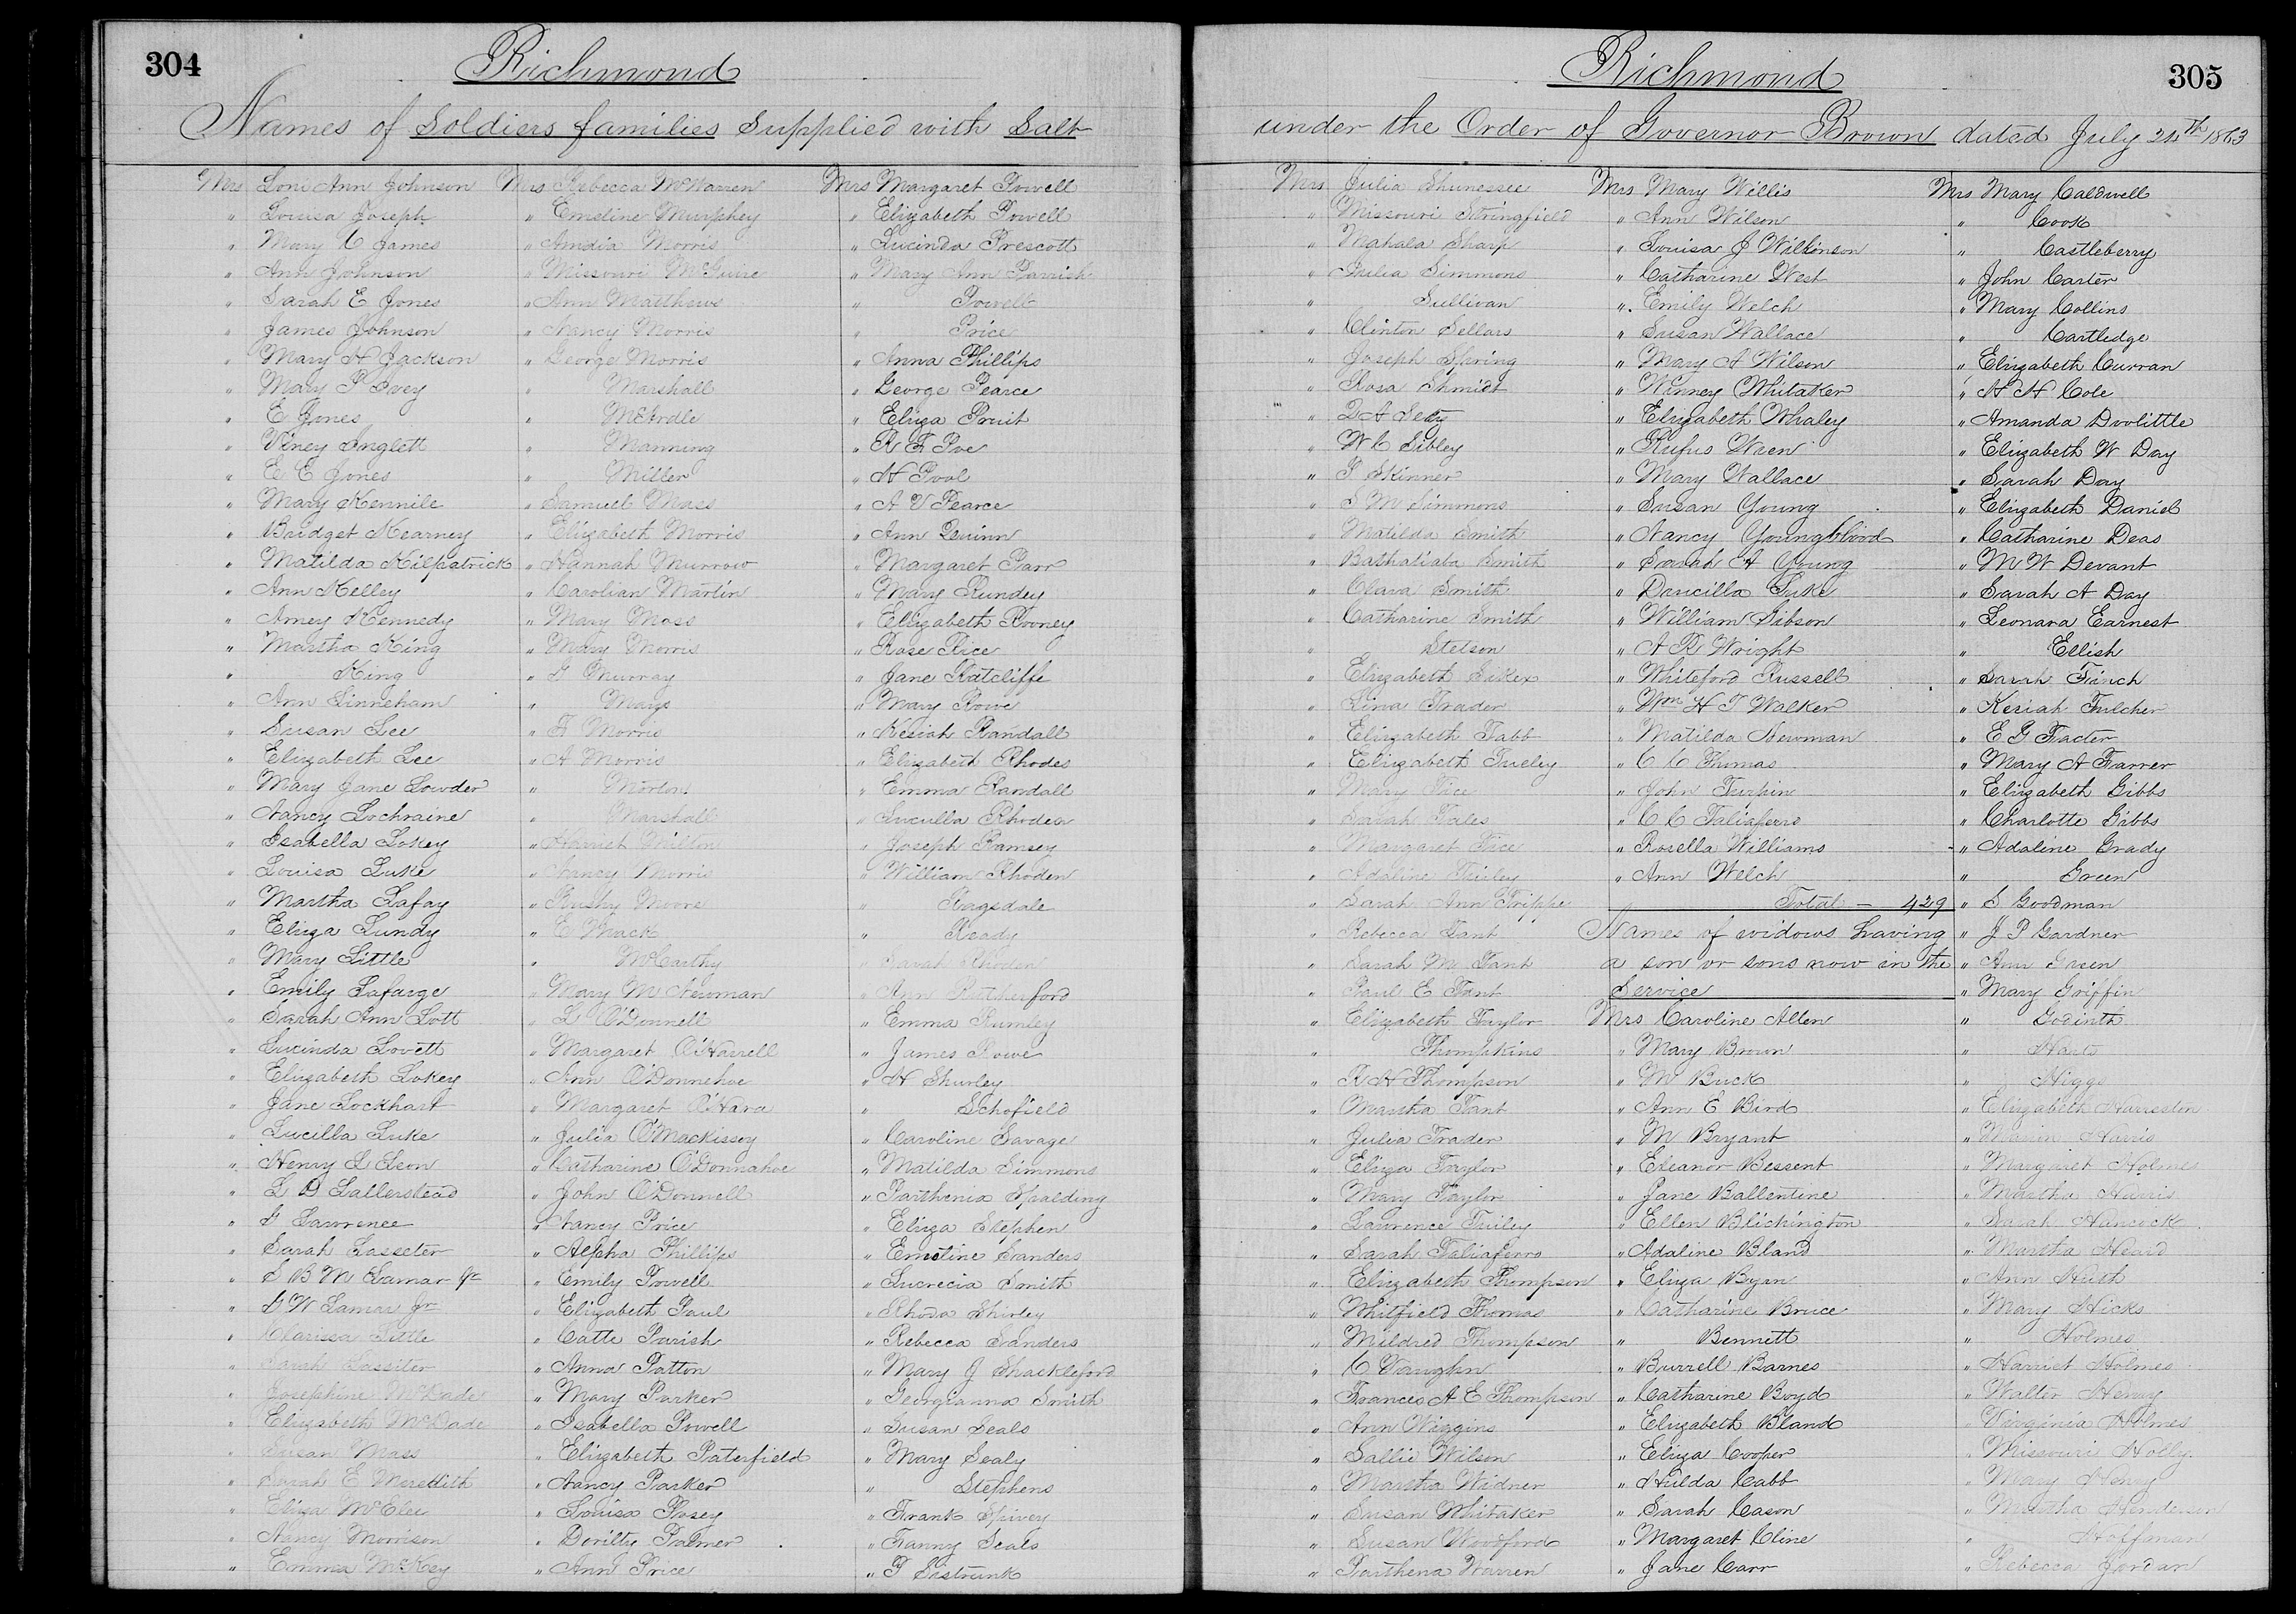 304
Richmond
Names of Soldiers families supplied with Salt
Mrs Loni Ann Johnson
" Louisa Joseph
" Mary C James
" Ann Johnson
" Sarah E Jones
" James Johnson
" Mary A Jackson
" Mary P Ivey
" E Jones
" Viney Inglett
" E E Jones
" Mary Kennile
" Bridget Kearney
" Matilda Kilpatrick
" Ann Kelley
" Amey Kennedy
" Martha King
" King
" Ann Linneham
" Susan Lee
" Elizabeth Lee
" Mary Jane Lowder
" Nancy Lochraine
" Isabella Lokey
" Louisa Luke
" Martha Lafay
" Eliza Lundy
" Mary Little
" Emily Lafarge
" Sarah Ann Lott
" Lucinda Lovett
" Elizabeth Lokey
" Jane Lockhart
" Lucilla Luke
" Henry L Leon
" L D Lallerstead
" Lawrence
" Sarah Lasseter
" L B M Lamar Jr
" G W Lamar Jr
" Clarissa Little
" Sarah Lassiter
" Josephine McDade
" Elizabeth McDade
" Susan Mass
" Sarah E Meredith
" Eliza McElee
" Nancy Morrison
" Emma McKey
Mrs Rebecca McWarren
" Emeline Murphey
" Amdia Morris
" Missouri McGuire
" Ann Matthews
" Nancy Morris
" George Morris
" Marshall
" McArdle
" Manning
" Miller
" Samuel Mass
" Elizabeth Morris
" Hannah Murrow
" Carolian Martin
" Mary Moss
" Mary Morris
" Murray
" Mays
" F Morris
" A Morris
" Morton
" Marshall
" Harriet Milton
" Nancy Morris
" Moore
" E Mack
" McCarthy
" Mary M Newman
" L O'Donnell
" Margaret O'Harrell
" Ann O'Donnehoe
" Margaret O'Hara
" Julia O'Mackissey
" Catharine O'Donnahoe
" John O'Donnell
" Nancy Price
" Alpha Phillips
" Emily Powell
" Elizabeth Paul
" Catte Parish
" Anna Patton
" Mary Parker
" Isabella Powell
" Elizabeth Paterfield
" Nancy Parker
" Louisa Posey
" Dorilty Palmer
" Ann Price
Mrs Margaret Powell
" Elizabeth Powell
" Lucinda Prescott
" Mary Ann Parrish
" Powell
" Price
" Anna Phillips
" George Pearce
" Eliza Pruit
" R F Poe
" H Pool
" A V Pearce
" Ann Quinn
" Margaret Parr
" Mary Rundey
" Elizabeth Rooney
" Rose Rice
" Jane Ratcliffe
" Mary Rowe
" Kesiah Randall
" Elizabeth Rhodes
" Emma Randall
" Lucuilla Rhoden
" Joseph Ramsey
" William Rhoden
" Ragsdale
" Ready
" Sarah Rhoden
" Ann Rutherford
" Emma Rumley
" James Rowe
" H Shurley
" Schofield
" Caroline Savage
" Matilda Simmons
" Parthenia Spalding
" Eliza Stephen
" Emeline Sanders
" Lucrecia Smith
" Rhoda Shirley
" Rebecca Sanders
" Mary J Shackleford
" Georgianna Smith
" Susan Seals
" Mary Sealy
" Stephens
" Frank Spivey
" Fanny Seals
" P Sistrunk
305
Richmond
under the Order of Governor Brown dated July 24th 1863
Mrs Julia Shunessee
" Missouri Stringfield
" Mahala Sharp
" Julia Simmons
" Sullivan
" Clinton Sellars
" Joseph Spring
" Rosa Shmidt
" D A Sety
" W C Sibley
" Skinner
" S M Simmons
" Matilda Smith
" Bathaliaba Smith
" Clara Smith
" Catharine Smith
" Stetson
" Elizabeth Sikex
" Lina Trader
" Elizabeth Tabb
" Elizabeth Tueley
" Mary Tice
" Sarah Tales
" Margaret Tice
" Adaline Turley
" Sarah Ann Trippe
" Rebecca Tant
" Sarah M Tant
" Paul E Tant
" Elizabeth Taylor
" Thompkins
" R H Thompson
" Martha Tant
" Julia Trader
" Eliza Taylor
" Mary Taylor
" Lawrence Tuiley
" Sarah Taliaferro
" Elizabeth Thompson
" Whitfield Thomas
" Mildred Thompson
" C Vaughn
" Frances A E Thompson
" Ann Wiggins
" Sallie Wilson
" Martha Widner
" Susan Whitaker
" Susan Woodford
" Parthena Warren
Mrs Mary Willis
" Ann Wilson
" Louisa J Wilkinson
" Catharine West
" Emily Welch
" Susan Wallace
" Mary A Wilson
" Winney Whitaker
" Elizabeth Whaley
" Rufus Wren
" Mary Wallace
" Susan Young
" Nancy Youngblood
" Sarah A Young
" Drucilla Luke
" William Gibson
" A R Wright
" Whiteford Russell
" Wm H T Walker
" Matilda Newman
" C C Thomas
" John Turpin
" C C Taliaferro
" Rosella Williams
" Ann Welch
Total — 429
Names of widows having
a son or sons now in the
Service
Mrs Caroline Allen
" Mary Brown
" M Buck
" Ann E Bird
" M Bryant
" Eleanor Bessent
" Jane Ballentine
" Ellen Blichington
" Adaline Bland
" Eliza Bryan
" Catharine Bruce
" Bennett
" Burrell Barnes
" Catharine Boyd
" Elizabeth Bland
" Eliza Cooper
" Hulda Cabb
" Sarah Cason
" Margaret Cline
" Jane Carr
Mrs Mary Caldwell
" Cook
" Castleberry
" John Carter
" Mary Collins
" Cartledge
" Elizabeth Curran
" H H Cole
" Amanda Doolittle
" Elizabeth W Day
" Sarah Day
" Elizabeth Daniel
" Catharine Deas
" M W Devant
" Sarah A Day
" Leonara Earnest
" Ellish
" Sarah Finch
" Kesiah Fulcher
" E G Facter
" Mary A Farrer
" Elizabeth Gibbs
" Charlotte Gibbs
" Adaline Grady
" Green
" S Goodman
" J P Gardner
" Ann Green
" Mary Griffin
" Godinth
" Hart
" Higgs
" Elizabeth Harreston
" Marion Harris
" Margaret Holmes
" Martha Harris
" Sarah Hancock
" Martha Heard
" Ann Huth
" Mary Hicks
" Holmes
" Harriet Holmes
" Walter Henry
" Virginia Holmes
" Missouri Holly
" Mary Henry
" Martha Henderson
" Hoffman
" Rebecca Jordan